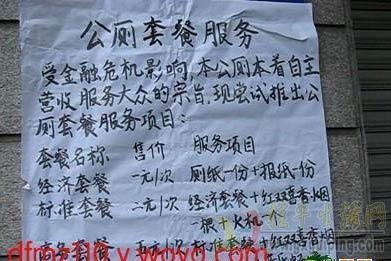 公厕套餐服务
受金融危机影响,本公厕本着自主
营收服务大众的宗旨,现尝试推出公
厕套餐服务项目:
套餐名称 售价 服务项目
经济套餐 一元/次 厕纸一份+报纸一份
标准套餐 二元/次 经济套餐+红双喜香烟
一根+火机
套餐 元/次 标准套餐+红双喜香烟